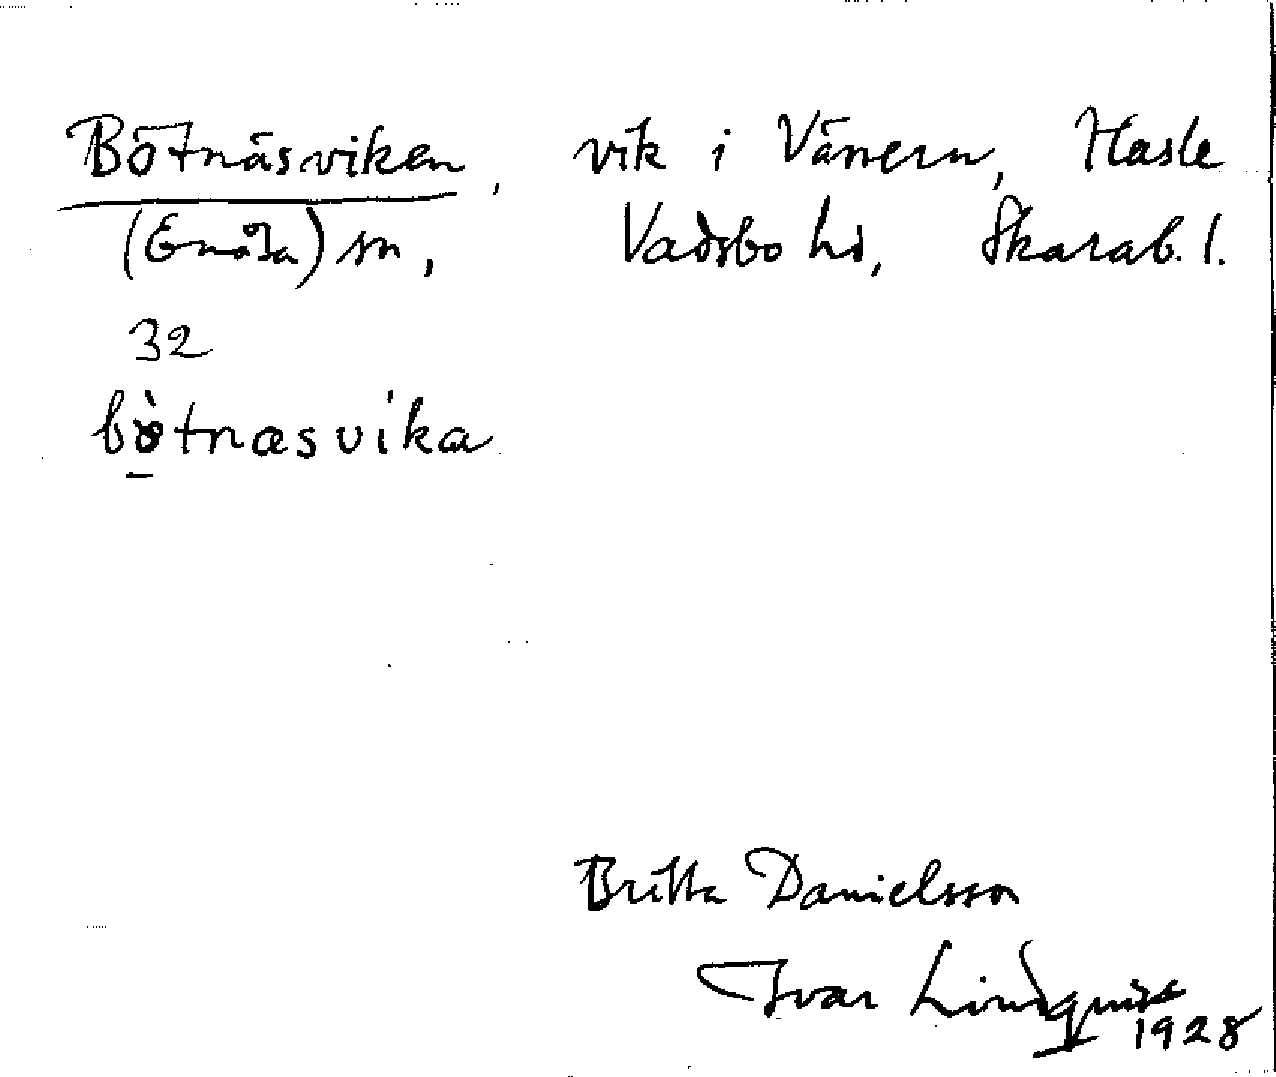 Bötnäsviken, vik i Vänern, Hasle
(Enåsa) sn, Vadsbo hd, Skarab. l.
32
bötnæsvika
Britta Danielsson
Ivar Lindquist
1928